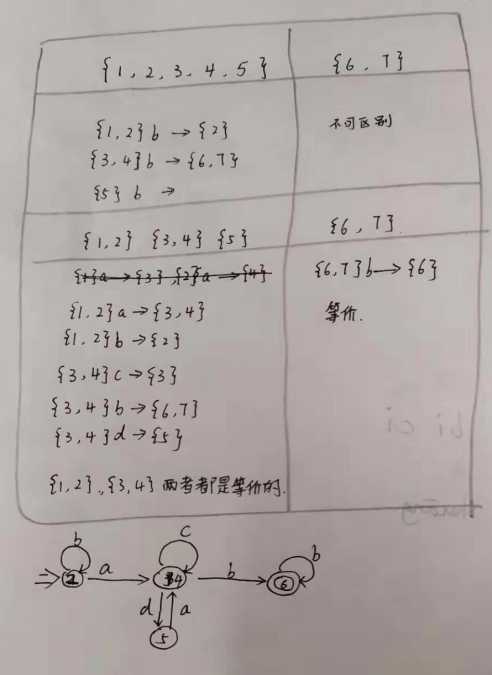 {1, 2, 3, 4, 5}
{6, 7}
{1, 2} b → {2}
{3, 4} b → {6, 7}
{5} b →
不可区别
{1, 2} {3, 4} {5}
{6, 7}
{1}a → {3}, {2}a → {4}
{1, 2} a → {3, 4}
{1, 2} b → {2}
{3, 4} c → {3}
{3, 4} b → {6, 7}
{3, 4} d → {5}
{1, 2}, {3, 4} 两者都是等价的.
{6, 7} b → {6}
等价.
b c b
a b
d a
5